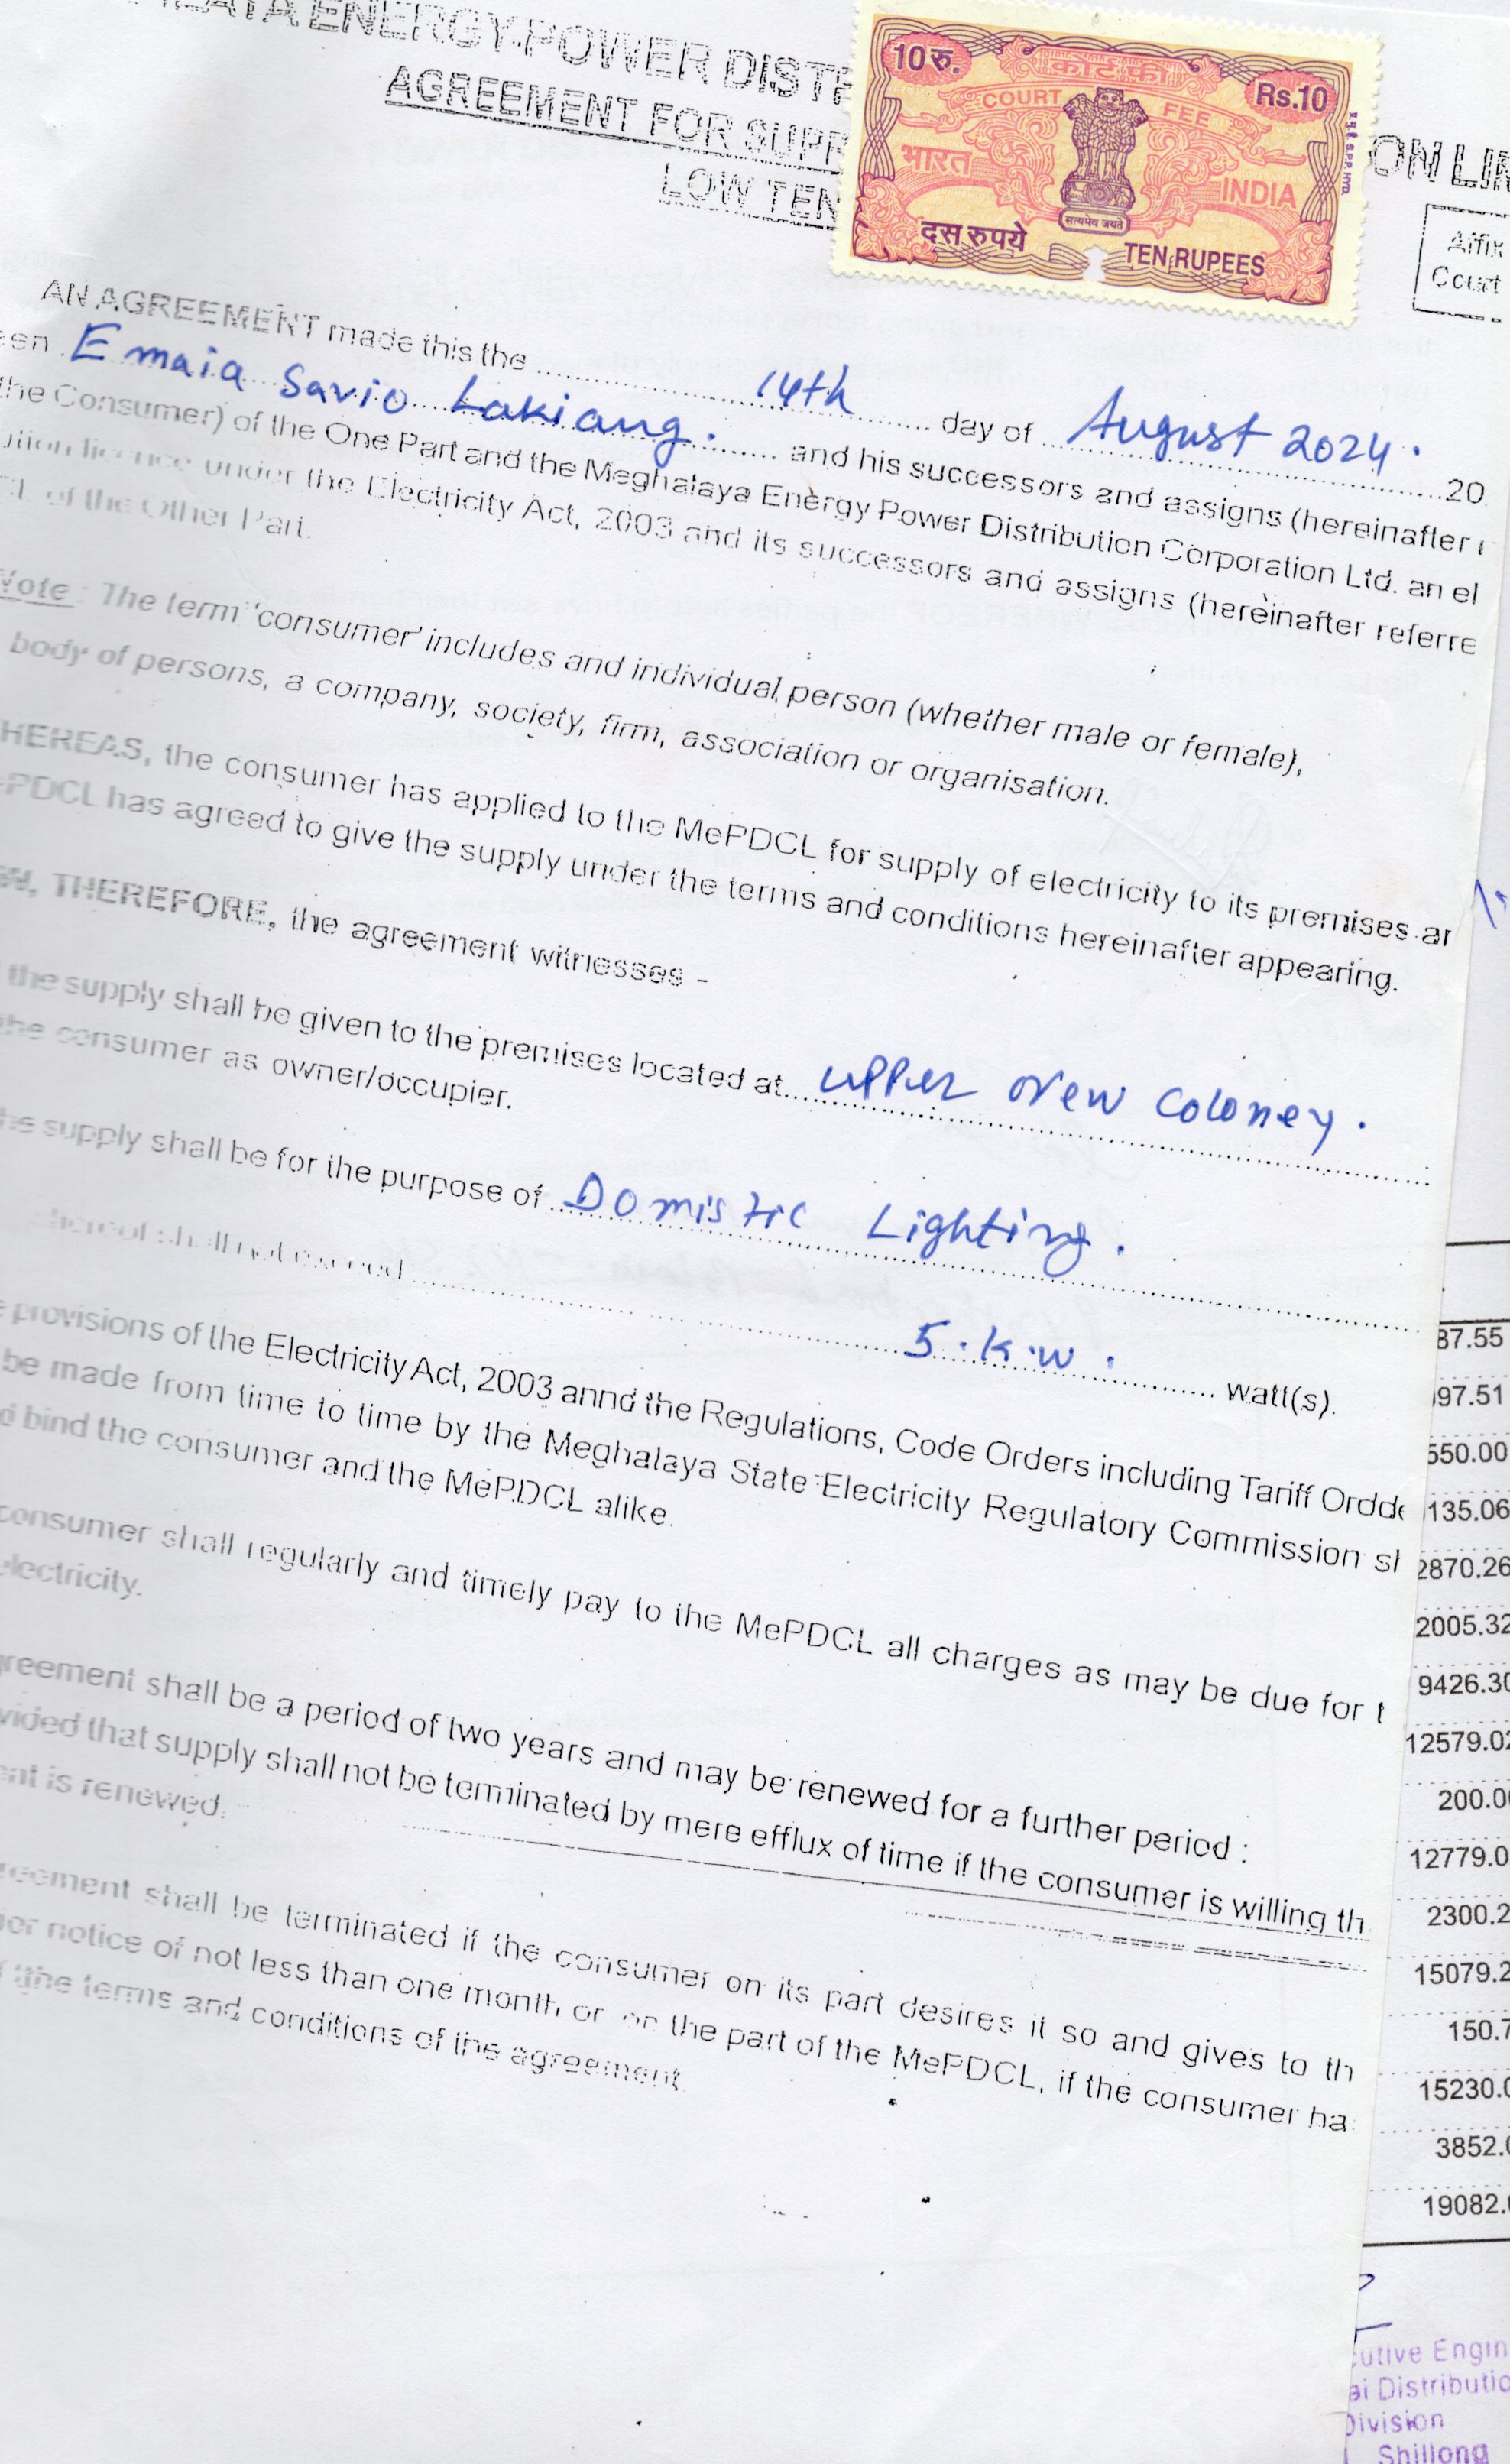 ENERGY POWER DIST
ON LI
AGREEMENT FOR SUPP
LOW TEN
10 रु.
कोर्ट फ़ी
Rs.10
COURT FEE
भारत
INDIA
सत्यमेव जयते
दस रुपये
TEN RUPEES
Affix
Court
AN AGREEMENT made this the 14th day of August 2024. 20
een Emaia Savio Lakiang. and his successors and assigns (hereinafter
the Consumer) of the One Part and the Meghalaya Energy Power Distribution Corporation Ltd. an el
ution licence under the Electricity Act, 2003 and its successors and assigns (hereinafter referre
CL of the Other Part.
Note : The term 'consumer' includes and individual person (whether male or female),
body of persons, a company, society, firm, association or organisation.
HEREAS, the consumer has applied to the MePDCL for supply of electricity to its premises ar
PDCL has agreed to give the supply under the terms and conditions hereinafter appearing.
W, THEREFORE, the agreement witnesses -
the supply shall be given to the premises located at upper New Coloney.
the consumer as owner/occupier.
he supply shall be for the purpose of Domistic Lighting.
thereof shall not exceed 5.K.W. watt(s).
e provisions of the Electricity Act, 2003 annd the Regulations, Code Orders including Tariff Ordde
be made from time to time by the Meghalaya State Electricity Regulatory Commission sh
d bind the consumer and the MePDCL alike.
consumer shall regularly and timely pay to the MePDCL all charges as may be due for t
electricity.
greement shall be a period of two years and may be renewed for a further period :
vided that supply shall not be terminated by mere efflux of time if the consumer is willing th
ent is renewed.
reement shall be terminated if the consumer on its part desires it so and gives to th
ior notice of not less than one month or on the part of the MePDCL, if the consumer ha
the terms and conditions of the agreement.
87.55
97.51
550.00
135.06
2870.26
2005.32
9426.30
12579.02
200.0
12779.0
2300.2
15079.2
150.7
15230.0
3852.0
19082.
cutive Engin
ai Distributio
Division
Shillong